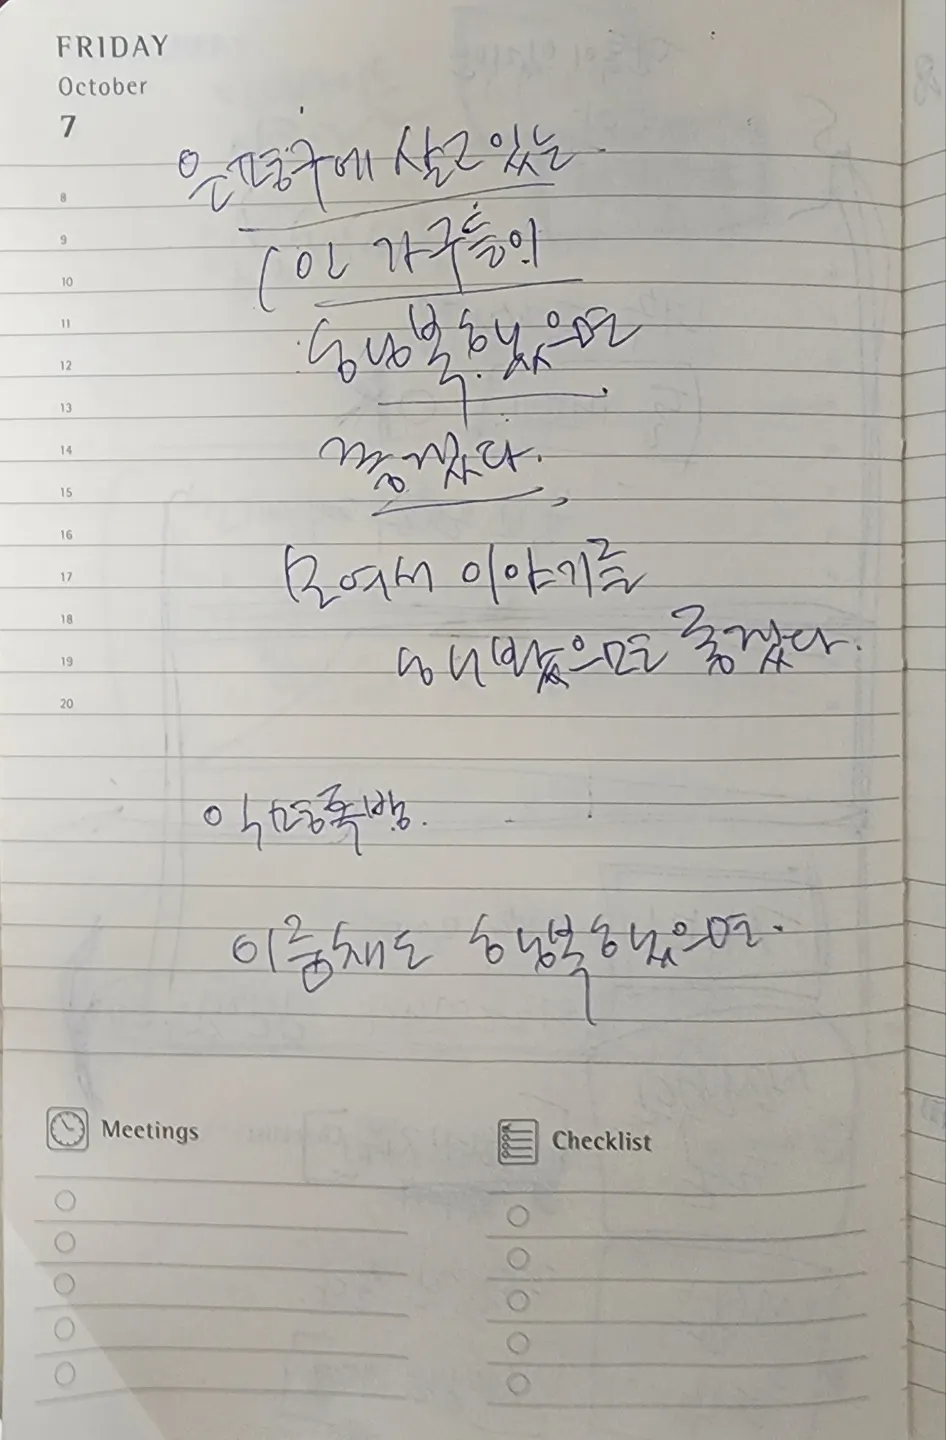 FRIDAY
October
7
은평구에 살고 있는
1인 가구들이
행복했으면
좋겠다.
모여서 이야기를
해봤으면 좋겠다.
이름채도 행복했으면.
8
9
10
11
12
13
14
15
16
17
18
19
20
Meetings
Checklist